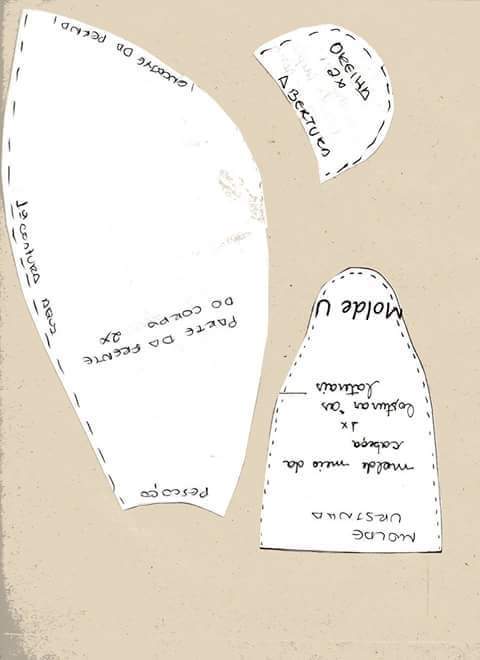 ENCAIXE DA PERNA
1ª COSTURA
PARTE DA FRENTE
DO CORPO
2x
PESCOÇO
ORELHA
2x
ABERTURA
Molde U
MOLDE
URSINHA
molde meio da
cabeça
1x
Costurar as
laterais